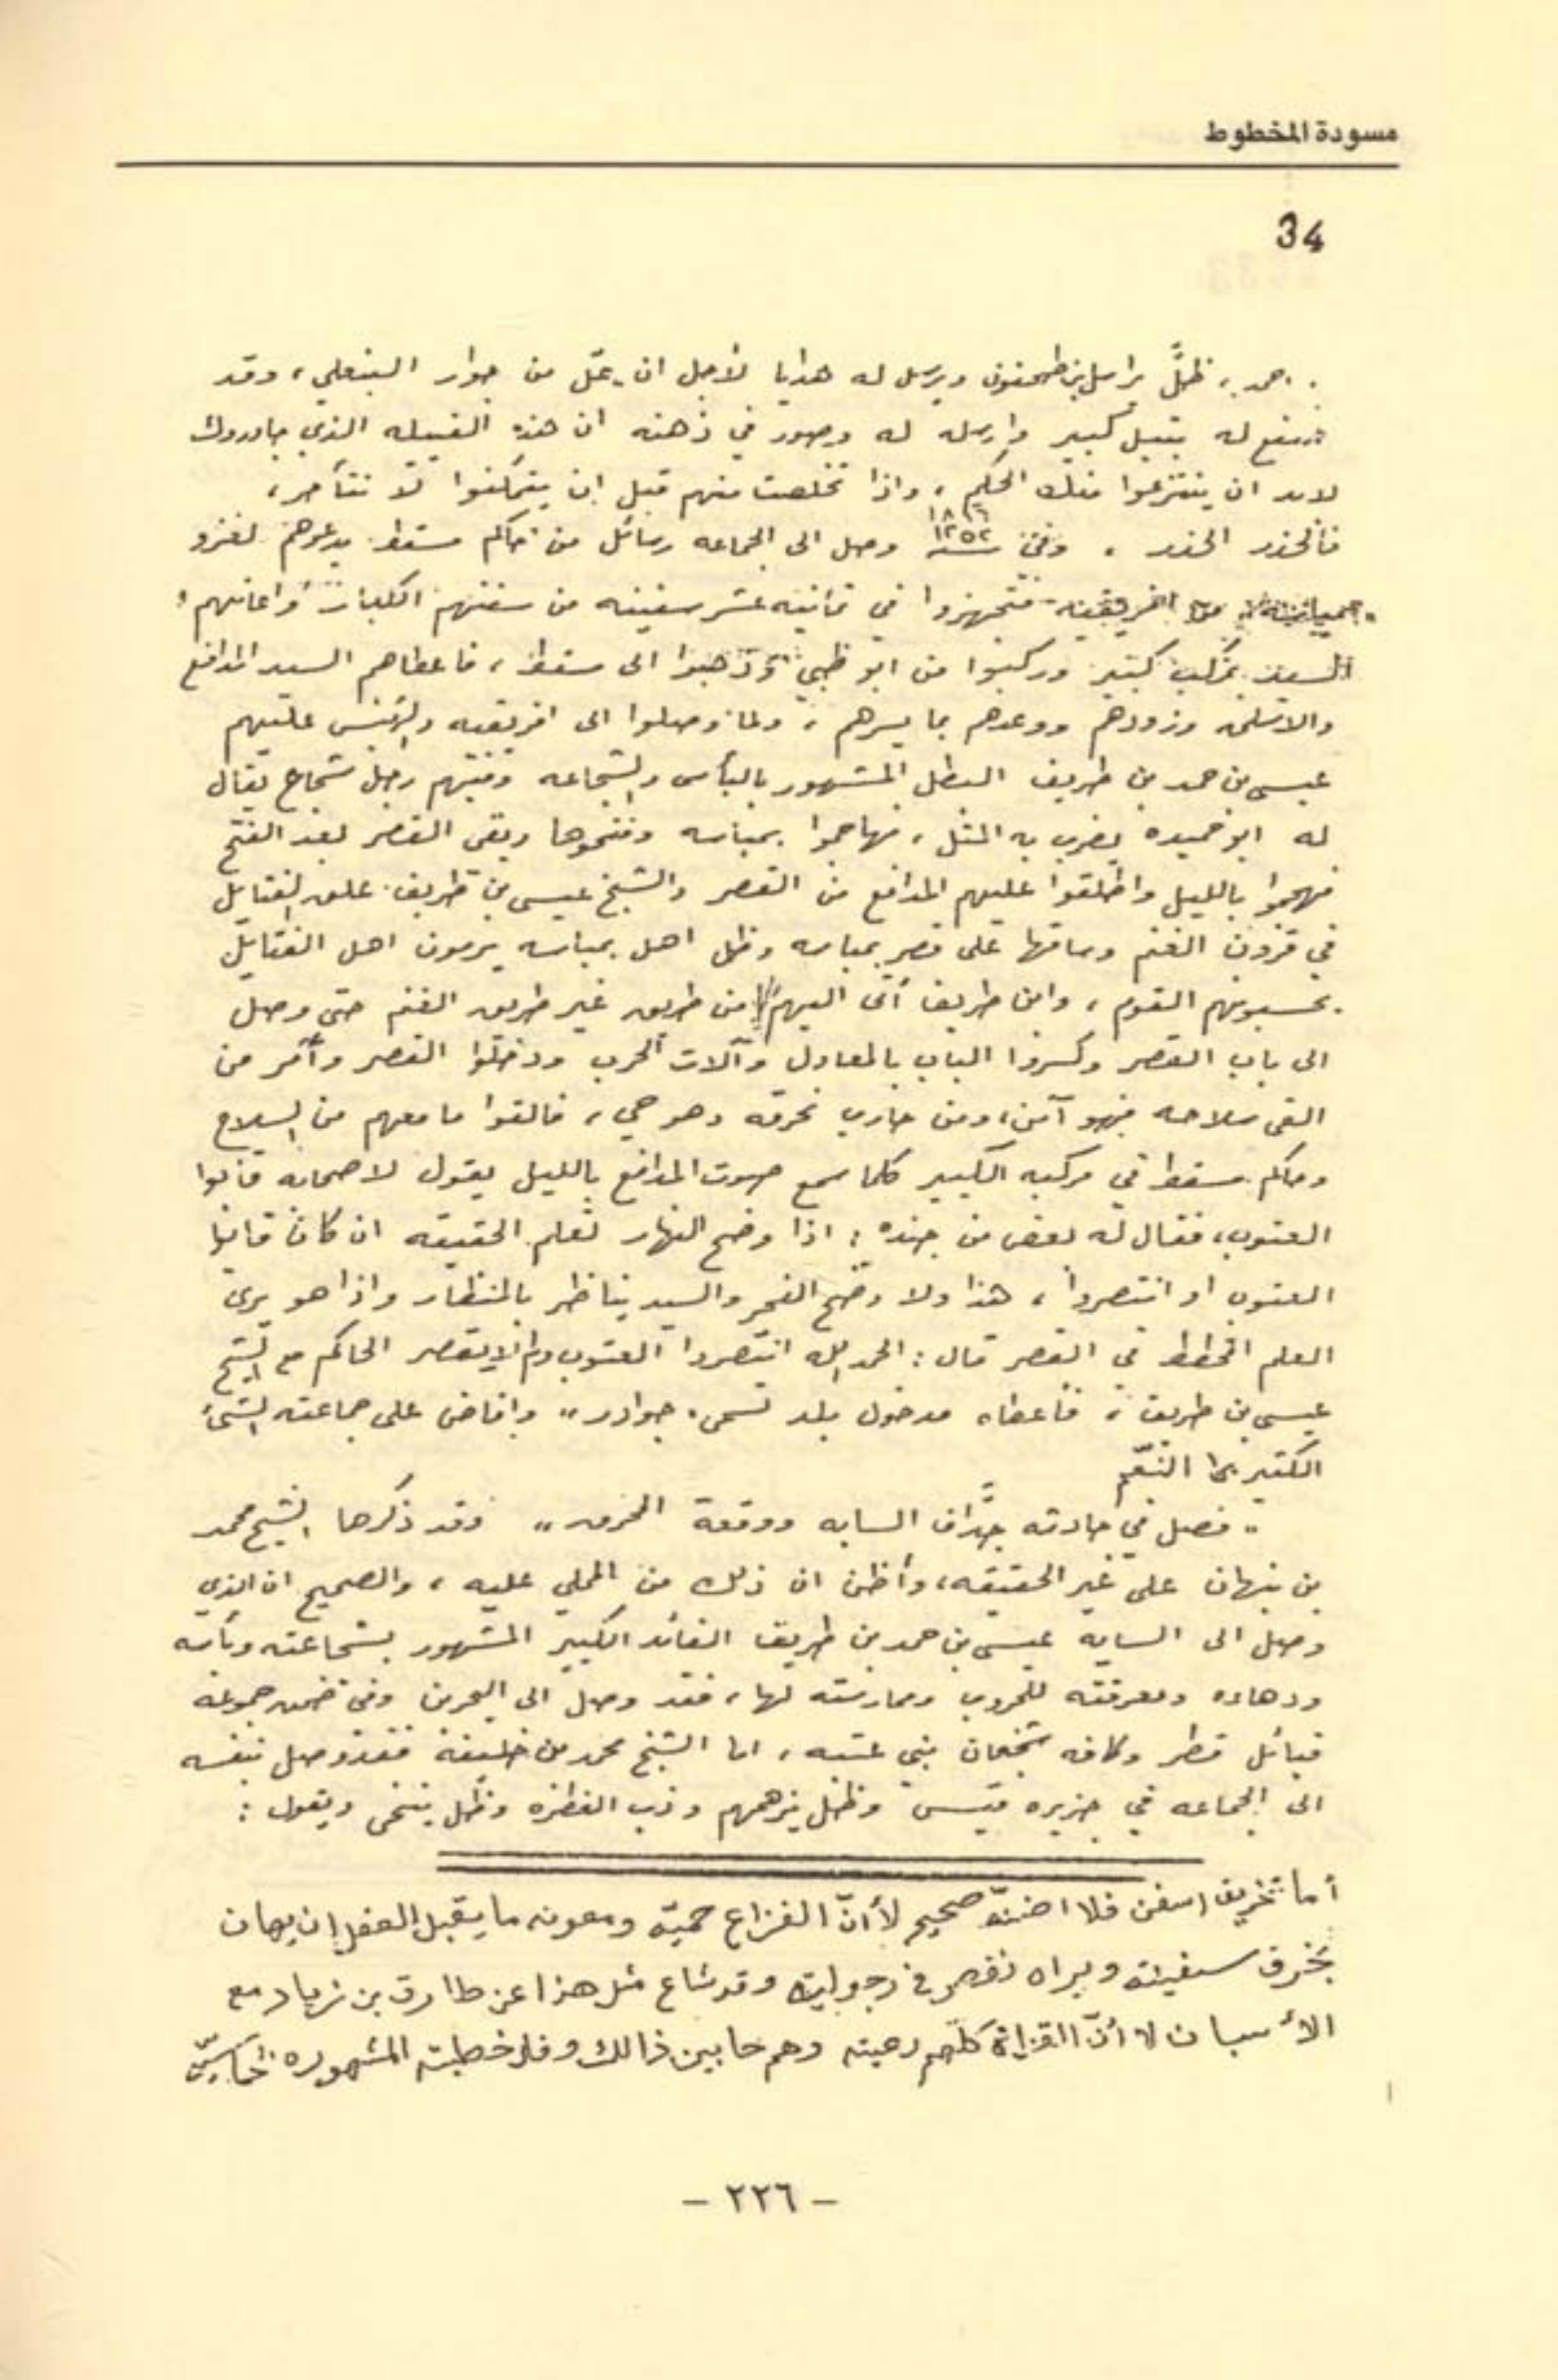 مسودة المخطوط
34
احمد، ظلَّ يراسل بن طحنون ويرسل له هدايا لأجل ان من جوار البنعلي، وقد
له كبير وارسله له وصور في ذهنه ان هذه القبيله الذي جاوروك
لابد ان ينتزعوا منك الحكم، واذا تخلصت منهم قبل ان يتمكنوا لا تتأخر،
فالحذر الحذر . وفي سنة ١٢٥٢ وصل الى الجماعه رسائل من حاكم مسقط يدعوهم لغزو
افريقيه فتجهزوا في ثمانية عشر سفينه من سفنهم الكبار واعانهم
السيد بمركب كبير وركبوا من ابو ظبي وذهبوا الى مسقط، فاعطاهم السيد المدافع
والاسلحه وزودهم ووعدهم بما يسرهم، ولما وصلوا الى افريقيه والرئيس عليهم
عيسى بن حمد بن طريف البطل المشهور بالبأس والشجاعه وفيهم رجل شجاع يقال
له ابو حميده يضرب به المثل، فهاجموا بمباسه وفتحوها وبقى القصر بعد الفتح
فهجموا بالليل واطلقوا عليهم المدافع من القصر والشيخ عيسى بن طريف علق الفتايل
في قرون الغنم وساقها على قصر بمباسه وظل اهل بمباسه يرمون اهل الفتايل
يحسبونهم القوم، وابن طريف أتى اليهم من طريق غير طريق الغنم حتى وصل
الى باب القصر وكسروا الباب بالمعاول وآلات الحرب ودخلوا القصر وأمر من
القى سلاحه فهو آمن، ومن حارب نحرقه وهو حي، فالقوا ما معهم من السلاح
وحاكم مسقط في مركبه الكبير كلما سمع صوت المدافع بالليل يقول لاصحابه فانوا
العتوب، فقال له بعض من جنده: اذا وضح النهار تعلم الحقيقه ان كان فانيا
العتوب او انتصروا، هذا ولا وضح الفجر والسيد يناظر بالمنظار واذا هو يرى
العلم المخطط في القصر قال: الحمد لله انتصروا العتوب ولم يقصر الحاكم مع الشيخ
عيسى بن طريف، فاعطاه مدخول بلد تسمى "جوادر" وافاض على جماعته الشئ
الكثير بما النعم
"فصل في حادثه جدّاف السايه ووقعة المحرق" وقد ذكرها الشيخ محمد
بن نبهان على غير الحقيقه، وأظن ان ذلك من المملي عليه، والصحيح ان الذي
وصل الى السايه عيسى بن حمد بن طريف القائد الكبير المشهور بشجاعته وبأسه
ودهاءه ومعرفته للحروب وممارسته لها، فقد وصل الى البحرين وفي ضمن جموعه
قبائل قطر وكافه شجعان بني عتبه، اما الشيخ محمد من خليفة فقد وصل بنفسه
الى الجماعه في جزيره قيس وظل يزهمهم وذب الغطره وظل ينخى ويقول:
أما تخريق اسفن فلا اضنه صحيح لأنّ الفزاع حميّه ومعونه ما يقبل العقل ان يهان
بخرق سفينته ويراه نقص في رجوليته وقد شاع مثل هذا عن طارق بن زياد مع
الأسبان لا أنّ الغزاة كلهم رعيته وهم حابين ذالك و خطبته المشهوره
- ٢٢٦ -